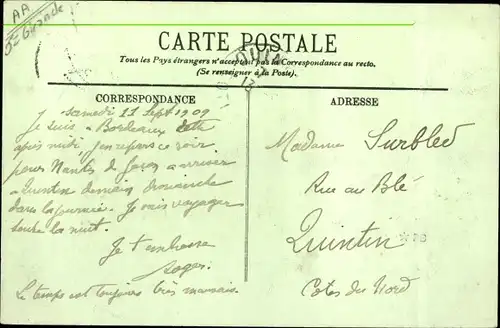 AA
Gironde
CARTE POSTALE
Tous les Pays étrangers n'acceptent pas la Correspondance au recto.
(Se renseigner à la Poste).
CORRESPONDANCE
Samedi 11 Sept 1909
Je suis a Bordeaux cette
après midi, j'en repars ce soir
pour Nantes de façon a arriver
a Quintin demain dimanche
dans la journée. Je vais voyager
toute la nuit.
Je t'embrasse
Le temps est toujours très mauvais.
ADRESSE
Madame Surbled
Rue au Blé
Quintin
Cotes du Nord